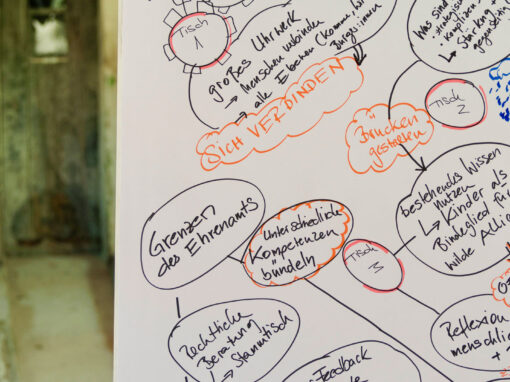 Tisch
1
großes Uhrwerk
→ Menschen verbinden
→ alle Ebenen (Komm.,
Bürger:innen
SICH VERBINDEN
Was sind
Stärken
Tisch
2
Brücken
gestalten
bestehendes Wissen
nutzen
↳ Kinder als
Bindeglied für
wilde Alli
Tisch
3
Grenzen
des Ehrenamts
Unterschiedliche
Kompetenzen
bündeln
Rechtliche
Beratung
↳ Stammtisch
Feedback
Reflexion
menschli